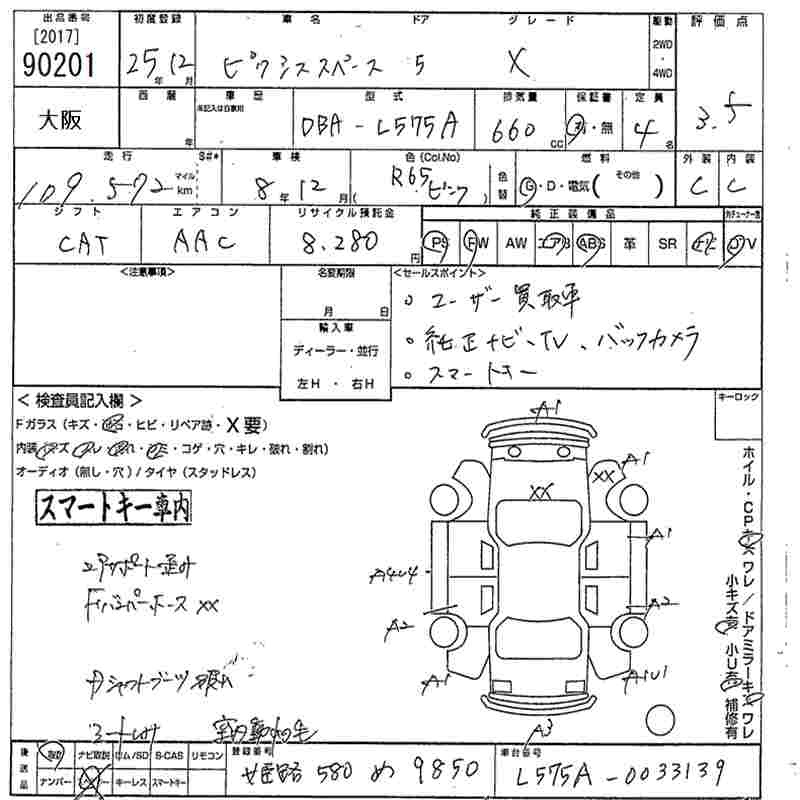 出品番号 初度登録 車名 ドア グレード 駆動 評価点
[2017]
90201 25年12月 ピクシススペース 5 X 2WD・4WD 3.5
大阪 西暦 年 車歴 型式 排気量 保証書 定員
未記入は自家用
DBA-L575A 660cc 有・無 4名
走行 S#* 車検 色(Col.No) 色替 燃料 外装 内装
109,572 マイル km 8年12月 ( R65 ピンク ) G・D・電気( その他 ) C C
シフト エアコン リサイクル預託金 純正装備品
CAT AAC 8,280円 PS FW AW エアB ABS 革 SR ナビ TV
<注意事項> 名変期限 <セールスポイント>
月 日
輸入車
ディーラー・並行
左H ・ 右H
。ユーザー買取車
。純正ナビ、TV、バックカメラ
。スマートキー
<検査員記入欄> キーロック
Fガラス(キズ・・ヒビ・リペア跡・X要)
内装(キズ・・・・コゲ・穴・キレ・破れ・割れ)
オーディオ(無し・穴)/タイヤ(スタッドレス)
スマートキー車内
コアサポート歪み
Fバンパーホース XX
A1
A1
XX
XX
A1
A4U4
A2
A2
A1
A1U1
A3
ホイル・CPキズワレ/ドアミラーキズワレ
小キズ有 小U有 補修有
後送品 取説 ナビ取説 ロム/SD S-CAS リモコン 登録番号 車台番号
ナンバー キーレス スマートキー
姫路 580 め 9850 L575A-0033139